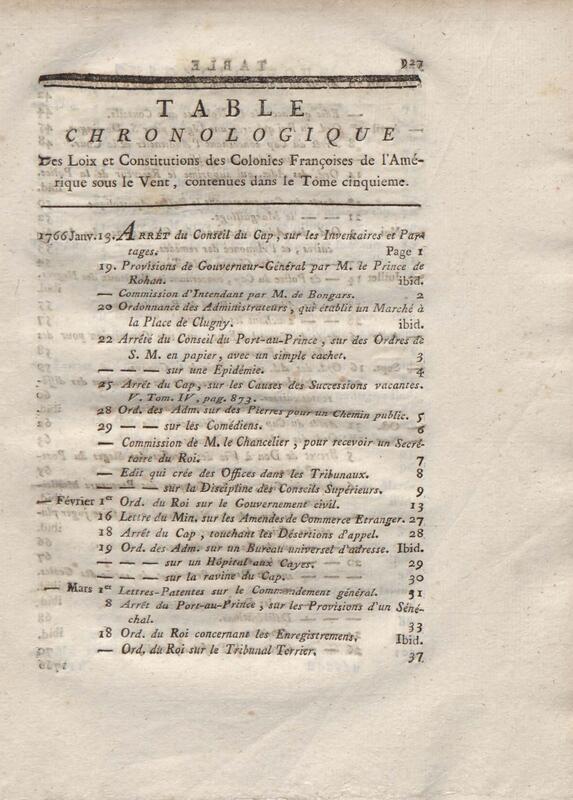 927
TABLE
CHRONOLOGIQUE
Des Loix et Constitutions des Colonies Françoises de l'Amé-
rique sous le Vent, contenues dans le Tome cinquieme.
1766 Janv. 13. ARRÊT du Conseil du Cap, sur les Inventaires et Par-
tages. Page 1
19. Provisions de Gouverneur-Général par M. le Prince de
Rohan. ibid.
— Commission d'Intendant par M. de Bongars. 2
20 Ordonnance des Administrateurs, qui établit un Marché à
la Place de Clugny. ibid.
22 Arrêté du Conseil du Port-au-Prince, sur des Ordres de
S. M. en papier, avec un simple cachet. 3
— — — sur une Epidémie. 4
25 Arrêt du Cap, sur les Causes des Successions vacantes.
V. Tom. IV, pag. 873.
28 Ord. des Adm. sur des Pierres pour un Chemin public. 5
29 — — sur les Comédiens. 6
— Commission de M. le Chancelier, pour recevoir un Secré-
taire du Roi. 7
— Edit qui crée des Offices dans les Tribunaux. 8
— — — sur la Discipline des Conseils Supérieurs. 9
— Février 1er Ord. du Roi sur le Gouvernement civil. 13
16 Lettre du Min. sur les Amendes de Commerce Etranger. 27
18 Arrêt du Cap, touchant les Désertions d'appel. 28
19 Ord. des Adm. sur un Bureau universel d'adresse. Ibid.
— — — sur un Hôpital aux Cayes. 29
— — — sur la ravine du Cap. 30
— Mars 1er Lettres-Patentes sur le Commandement général. 31
8 Arrêt du Port-au-Prince, sur les Provisions d'un Séné-
chal. 33
18 Ord. du Roi concernant les Enregistremens. Ibid.
— Ord. du Roi sur le Tribunal Terrier. 37